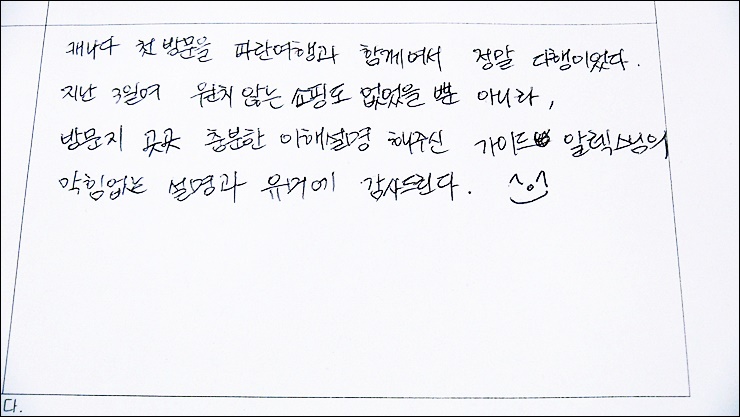 캐나다 첫 방문을 파란여행과 함께여서 정말 다행이었다.
지난 3일여 원치 않는 쇼핑도 없었을 뿐 아니라,
방문지 곳곳 충분한 이해설명 해주신 가이드 알렉스님의
막힘없는 설명과 유머에 감사드린다. ^o^
다.